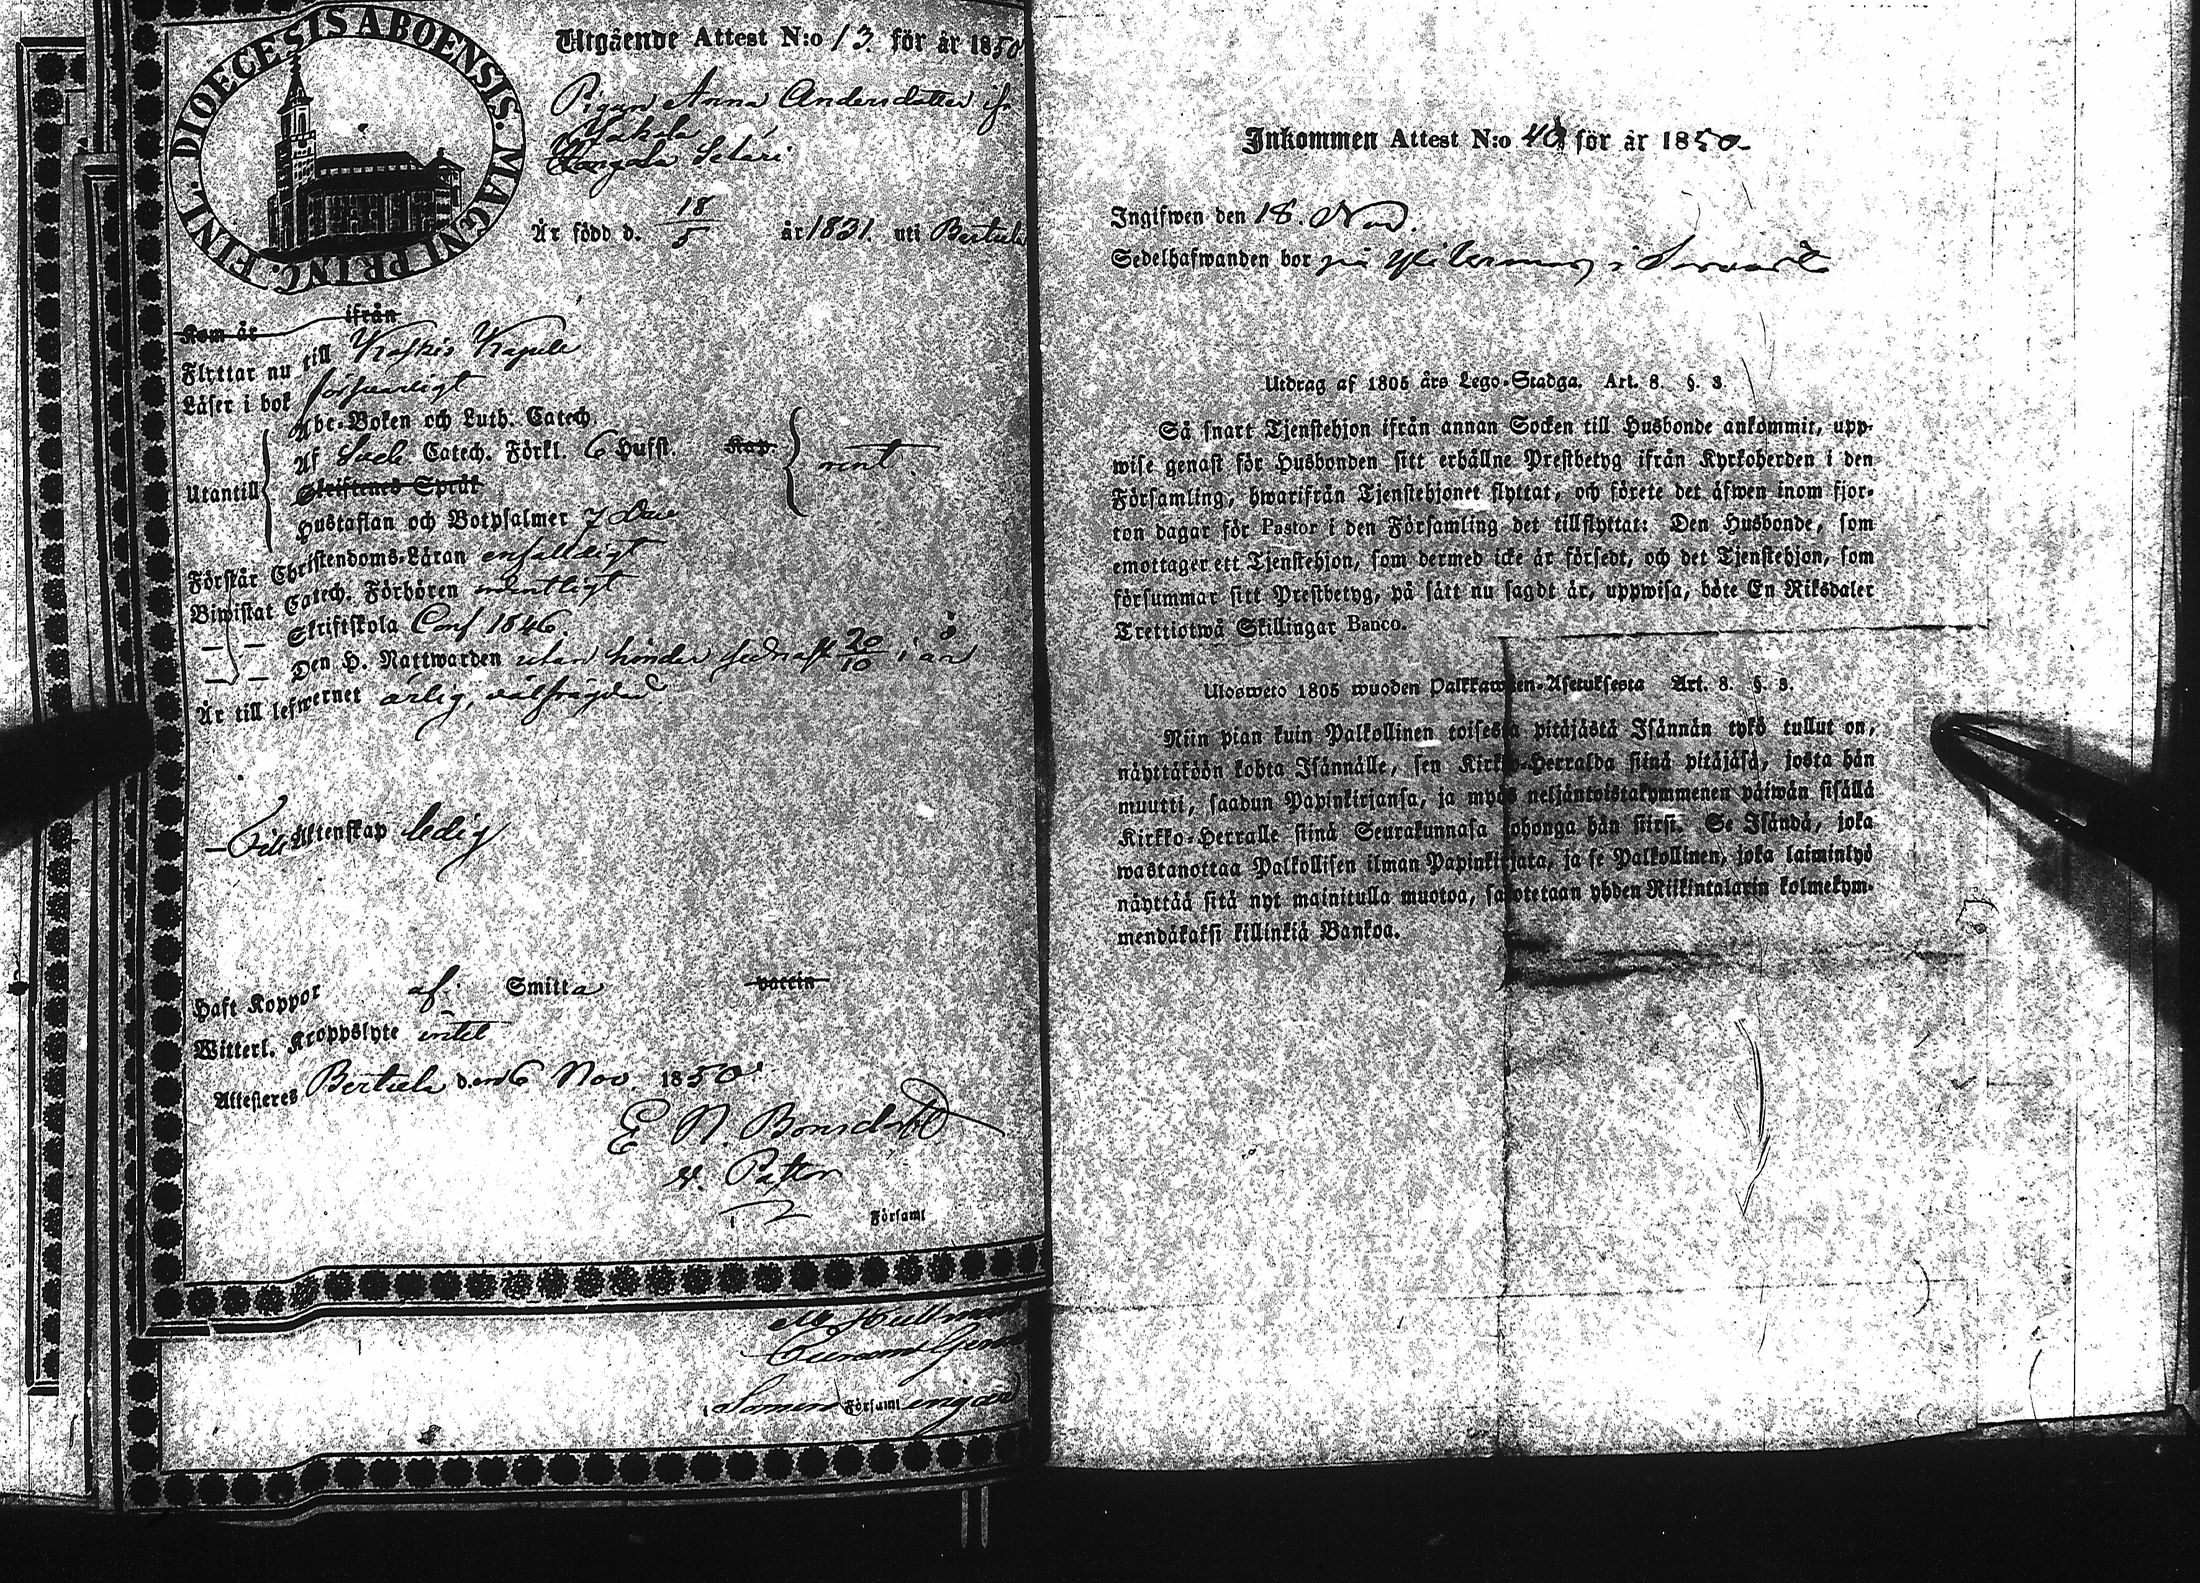 DIOECESIS ABOENSIS. MAGNI PRINC. FINL.
Utgående Attest N:o 13. för år 1850
Pigan Anna Andersdotter ifr
Är född d. 18/5 år 1831. uti Bertula
Kom år ifrån
Flyttar nu till Koskis Kapell
Läser i bok försvarligt
Abc-Boken och Luth. Catech.
Utantill Af Sveb. Catech. Förkl. 6 Hufst. Kap. rent.
Skriftens Språk
Hustaflan och Botpsalmer 7 Dav
Förstår Christendoms-Läran enfalldigt
Biwistat Catech. Förhören ordentligt
— — Skriftskola Conf 1846.
— — Den H. Nattwarden utan hinder sednast 20/10 i år
Är till lefwernet ärlig, välfrägdad
— Till Äktenskap ledig
Haft Koppor af Smitta vaccin
Witterl. Kroppslyte intet
Attesteras Bertula den 6 Nov. 1850.
E N. Bonsdorff
v. Pastor
i Församl
i Somero Församl ingar
Inkommen Attest N:o 40 för år 1850
Ingifwen den 18. Nov.
Sedelhafwanden bor på
Utdrag af 1805 års Lego-Stadga. Art. 8. §. 3.
Så snart Tjenstehjon ifrån annan Socken till Husbonde ankommit, upp-
wise genast för Husbonden sitt erhållne Prestbetyg ifrån Kyrkoherden i den
Församling, hwarifrån Tjenstehjonet flyttat, och förete det äfwen inom fjor-
ton dagar för Pastor i den Församling det tillflyttat: Den Husbonde, som
emottager ett Tjenstehjon, som dermed icke är försedt, och det Tjenstehjon, som
försummar sitt Prestbetyg, på sätt nu sagdt är, uppwisa, böte En Riksdaler
Trettiotwå Skillingar Banco.
Ulosweto 1805 wuoden Palkkawäen-Asetuksesta Art. 8. §. 3.
Niin pian kuin Palkollinen toisesta pitäjästä Isännän tykö tullut on,
näyttäköön kohta Isännälle, sen Kirkko-Herralda siinä pitäjäsä, josta hän
muutti, saadun Papinkirjansa, ja myös neljäntoistakymmenen päiwän sisällä
Kirkko-Herralle siinä Seurakunnasa johonga hän siirsi. Se Isändä, joka
wastanottaa Palkollisen ilman Papinkirjata, ja se Palkollinen, joka laiminlyö
näyttää sitä nyt mainitulla muotoa, sakotetaan yhden Riikintalarin kolmekym-
mendäkaksi killinkiä Bankoa.